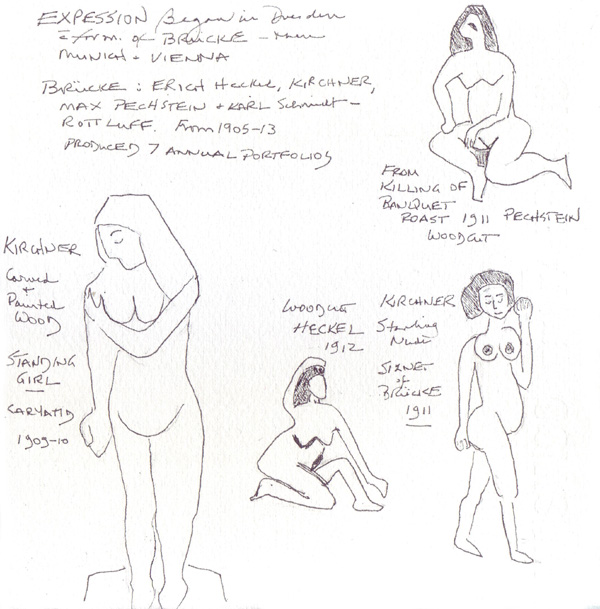 EXPESSION Began in Dresden
c̄ form. of BRÜCKE - then
MUNICH + VIENNA
BRÜCKE : ERICH Heckel, KIRCHNER,
MAX PECHSTEIN + KARL Schmidt-
ROTTLUFF. From 1905-13
PRODUCED 7 ANNUAL PORTFOLIOS
FROM
KILLING OF
BANQUET
ROAST 1911 PECHSTEIN
WOODCUT
KIRCHNER
Carved
+
Painted
WOOD
STANDING
GIRL
CARYATID
1909-10
WOODCUT
HECKEL
1912
KIRCHNER
Standing
Nude
SIGNET
of
BRÜCKE
1911